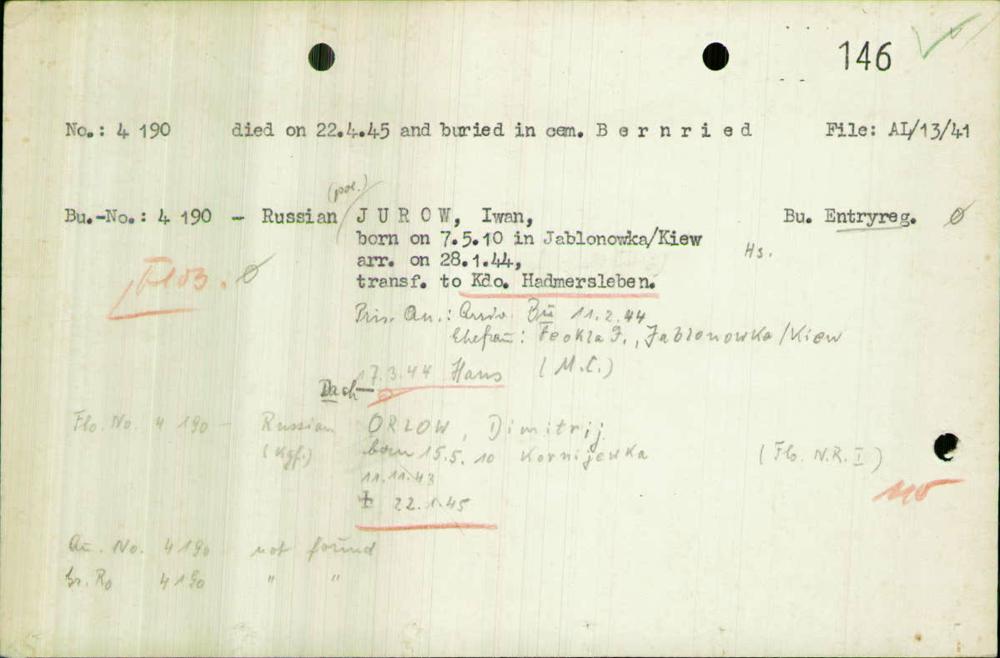 146
No.: 4 190 died on 22.4.45 and buried in cem. B e r n r i e d File: AL/13/41
(pol.)
Bu.-No.: 4 190 - Russian J U R O W, Iwan, Bu. Entryreg. Ø
born on 7.5.10 in Jablonowka/Kiew
Hs.
arr. on 28.1.44,
transf. to Kdo. Hadmersleben.
Ø
11.2.44
Ehefrau: Feokla J., Jablonowka/Kiew
17.3.44 Hans (M.C.)
Dach
Flo. No. 4 190 - Russian ORLOW, Dimitrij
(Kgf.) born 15.5.10 Kornijewka (Flo. N.R. I)
11.11.43
‡ 22.1.45
Au. No. 4190 not found
Gr. Ro 4190 " "